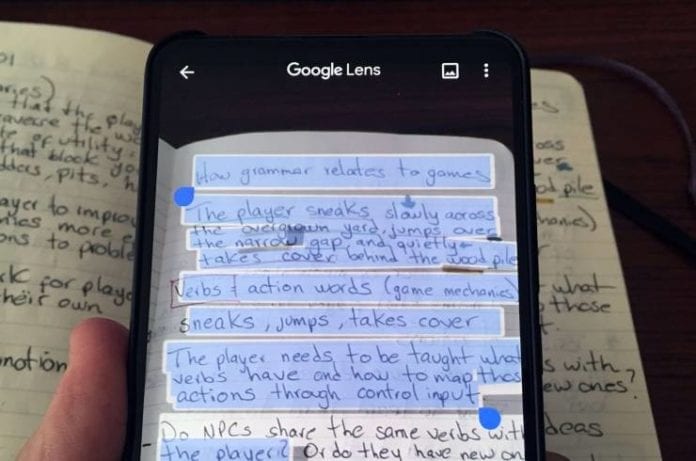 Google Lens
How grammar relates to games
The player sneaks slowly across
the overgrown yard, jumps over
the narrow gap, and quietly
takes cover behind the wood pile
Verbs = action words (game mechanics)
sneaks, jumps, takes cover
The player needs to be taught what
verbs have and how to map thos
actions through control input.
Do NPCs share the same verbs with
the player? Or do they have new on
that the play
averse the
or utility.
that block yo
dders, pits, h
ayer to improv
nics more
ons to proble
rk for playe
heir own
notion
oss
ver
ood pile
hanics)
what
those
t.
s with
ew ones?
deas